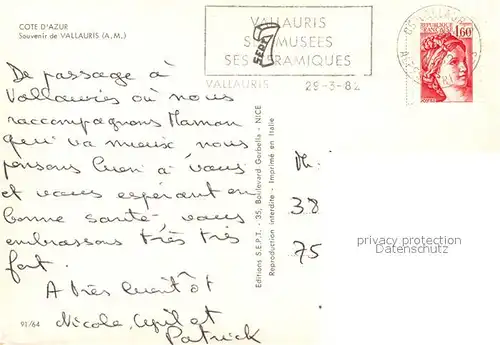 COTE D'AZUR
Souvenir de VALLAURIS (A.M.)
VALLAURIS
SES MUSEES
SES CERAMIQUES
VALLAURIS 29-3-82
1,60
De passage à
Vallauris où nous
raccompagnons Maman
qui va mieux nous
pensons bien à vous
et vous espérant en
bonne santé vous
embrassons très très
fort.
A très bientôt
Nicole, et
Patrick
91/64
Editions S.E.P.T. - 35, Boulevard Gorbella - NICE
Reproduction interdite - Imprimé en Italie
38
75
privacy protection
Datenschutz